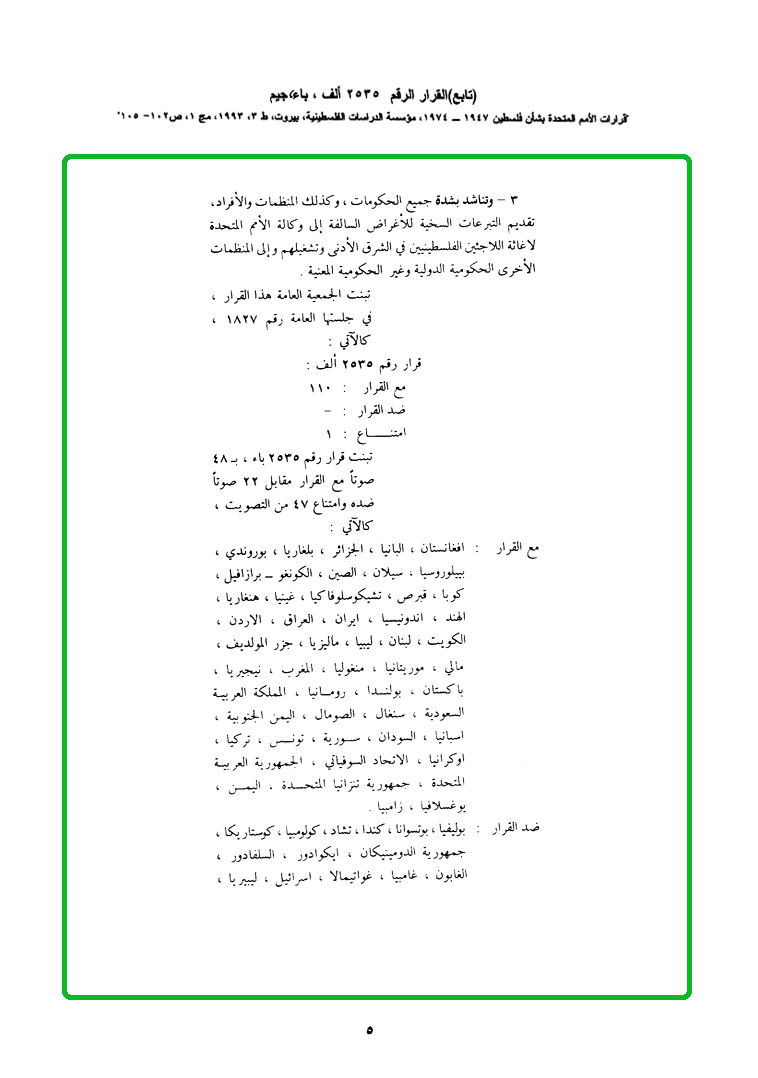 (تابع)القرار الرقم ٢٥٣٥ ألف ، باء،جيم
"قرارات الأمم المتحدة بشأن فلسطين ١٩٤٧ – ١٩٧٤، مؤسسة الدراسات الفلسطينية، بيروت، ط ٣، ١٩٩٣، مج ١، ص١٠٢- ١٠٥"
٣ – وتناشد بشدة جميع الحكومات ، وكذلك المنظمات والأفراد،
تقديم التبرعات السخية للأغراض السالفة إلى وكالة الأمم المتحدة
لاغاثة اللاجئين الفلسطينيين في الشرق الأدنى وتشغيلهم وإلى المنظمات
الأخرى الحكومية الدولية وغير الحكومية المعنية .
تبنت الجمعية العامة هذا القرار ،
في جلستها العامة رقم ١٨٢٧ ،
كالآتي :
قرار رقم ٢٥٣٥ ألف :
مع القرار : ١١٠
ضد القرار : –
امتنـــــاع : ١
تبنت قرار رقم ٢٥٣٥ باء ، بـ ٤٨
صوتاً مع القرار مقابل ٢٢ صوتاً
ضده وامتناع ٤٧ من التصويت ،
كالآتي :
مع القرار : افغانستان ، البانيا ، الجزائر ، بلغاريا ، بوروندي ،
بييلوروسيا ، سيلان ، الصين ، الكونغو – برازافيل ،
كوبا ، قبرص ، تشيكوسلوفاكيا ، غينيا ، هنغاريا ،
الهند ، اندونيسيا ، ايران ، العراق ، الاردن ،
الكويت ، لبنان ، ليبيا ، ماليزيا ، جزر المولديف ،
مالي ، موريتانيا ، منغوليا ، المغرب ، نيجيريا ،
باكستان ، بولنـدا ، رومـانيا ، المملكة العربيـة
السعودية ، سنغال ، الصومال ، اليمن الجنوبية ،
اسبانيا ، السودان ، سـورية ، تونـس ، تركيا ،
اوكرانيا ، الاتحاد السوفياتي ، الجمهورية العربيـة
المتحدة ، جمهورية تنزانيا المتحـــدة ، اليمـن ،
يوغسلافيا ، زامبيا .
ضد القرار : بوليفيا ، بوتسوانا ، كندا ، تشاد ، كولومبيا ، كوستاريكا ،
جمهورية الدومينيكان ، ايكوادور ، السلفادور ،
الغابون ، غامبيا ، غواتيمالا ، اسرائيل ، ليبيريا ،
٥